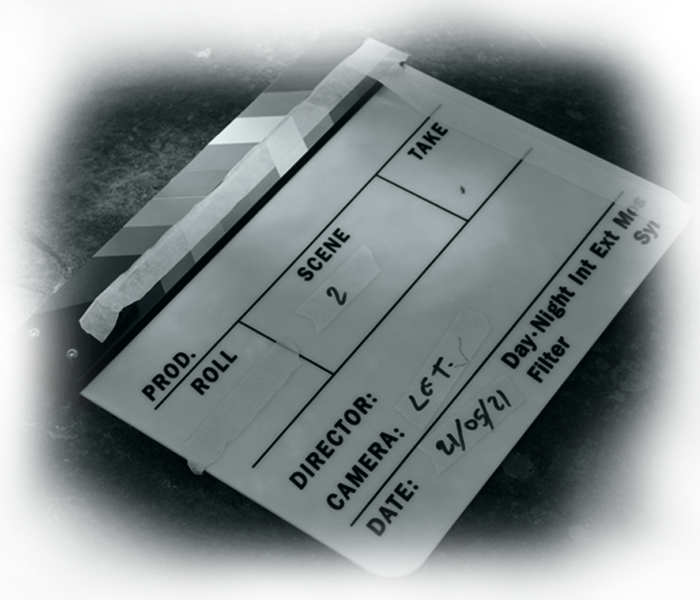 PROD.
ROLL SCENE TAKE
2
DIRECTOR:
CAMERA:
DATE: 21/05/21
Day·Night Int Ext Mos
Filter